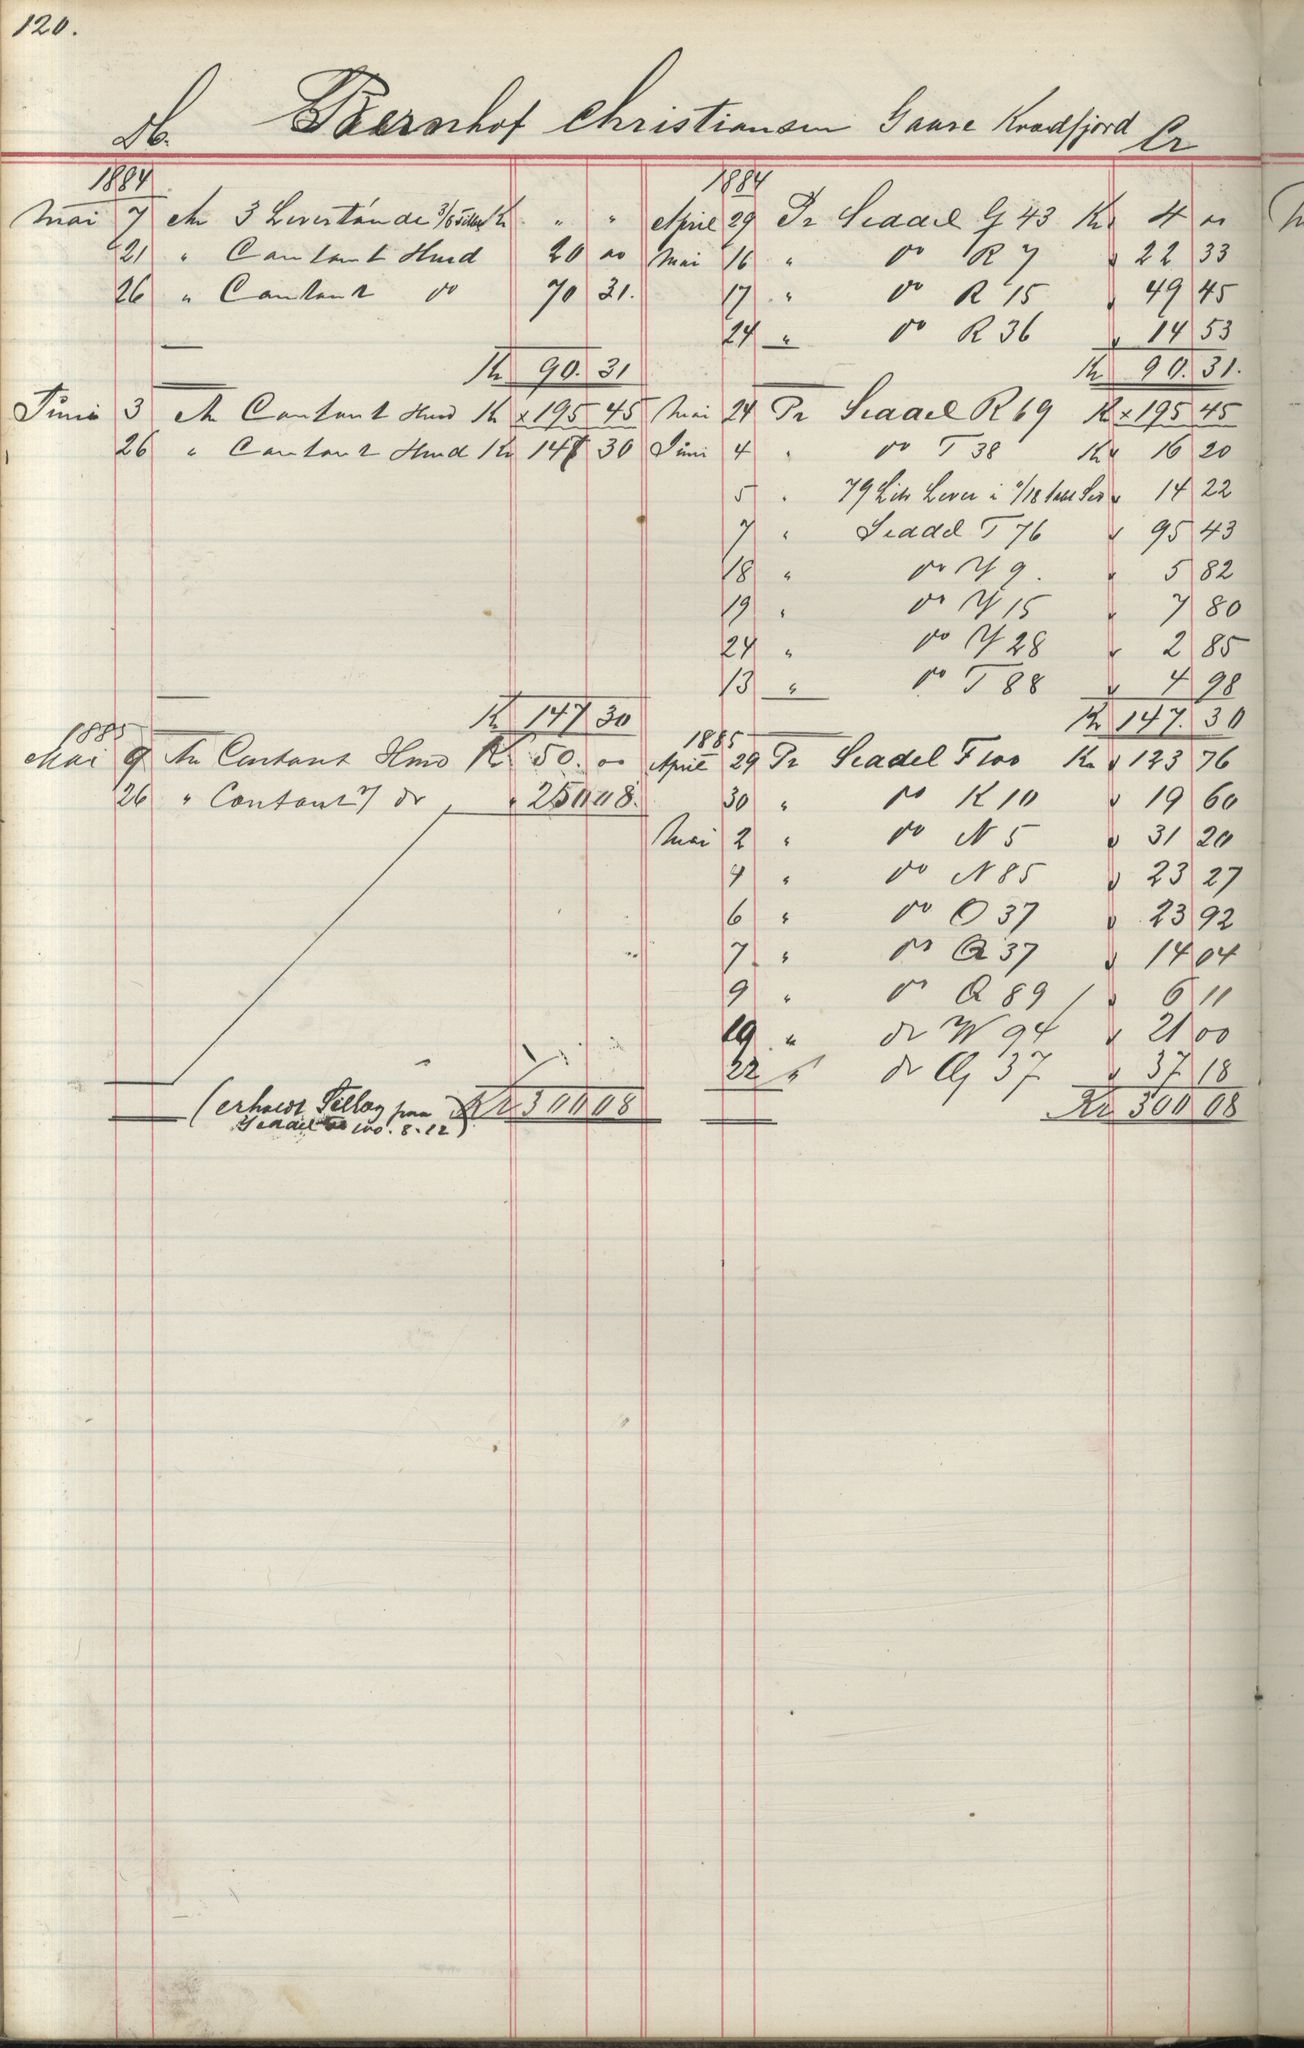 120.
Db. Bernhof Christiansen Gaare Kvædfjord Cr
1884
Mai 7 An 3 Leverstånde Kr " "
21 " Contant Hmd 20 00
26 " Contant do 70 31.
Kr 90. 31
Juni 3 An Contant Hmd Kr x 195 45
26 " Contant Hmd Kr 147 30
Kr 147 30
1885
Mai 9 An Contant Hmd Kr 50. 00
26 " Contant do " 250 08.
(erholdt Tillæg paa
Seddel 100. 8.12)
Kr 300 08
1884
April 29 Pr Seddel G 43 Kr 4 00
Mai 16 " do R 7 " 22 33
17 " do R 15 " 49 45
24 " do R 36 " 14 53
Kr 90. 31.
Mai 24 Pr Seddel R 69 K x 195 45
Juni 4 " do T 38 Kr 16 20
5 " 79 Lit Lever à 18 " 14 22
7 " Seddel T 76 " 95 43
18 " do Y 9. " 5 82
19 " do Y 15 " 7 80
24 " do Y 28 " 2 85
13 " do T 88 " 4 98
Kr 147. 30
1885
April 29 Pr Seddel F 100 Kr 123 76
30 " do K 10 " 19 60
Mai 2 " do N 5 " 31 20
4 " do N 85 " 23 27
6 " do O 37 " 23 92
7 " do Q 37 " 14 04
9 " do Q 89 " 6 11
19 " do W 94 " 21 00
22 " do 37 " 37 18
Kr 300 08